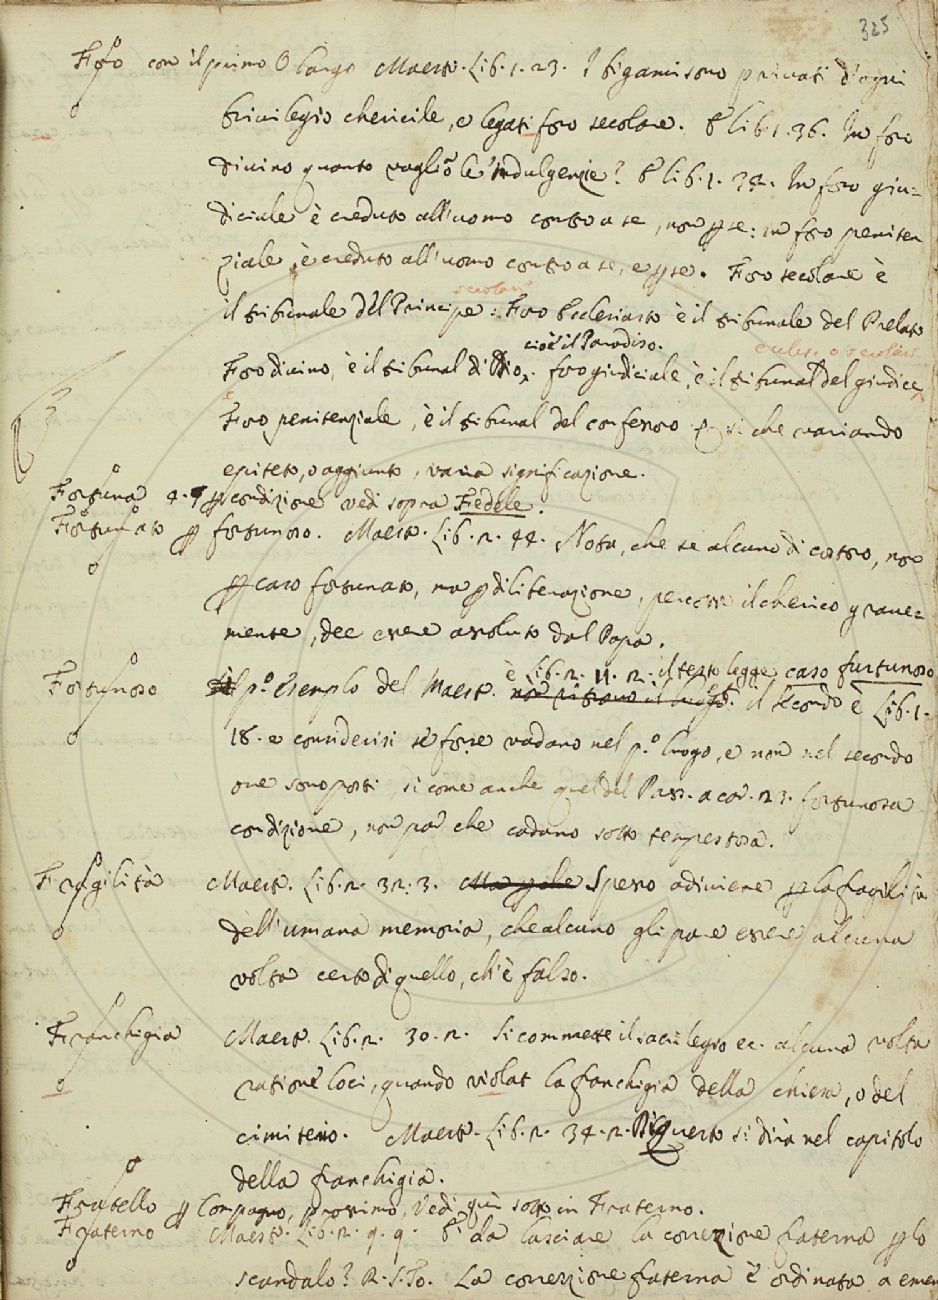 325
Foro con il primo O largo Maestr. Lib. 1. 23. I bigami sono privati d'ogni
privilegio chericile, e legati foro secolare. E lib. 1. 36. In foro
divino quanto vaglio le indulgenzie? E lib. 1. 32. In foro giu=
diciale è creduto all'uomo contro a se, non p se: in foro peniten
ziale è creduto all'uomo contro a se, e p se. Foro secolare è
secolare
il tribunale del Principe: Foro Ecclesiasto è il tribunale del Prelato
cioè il Paradiso.
eccles: o secolare
Foro divino, è il tribunal di Dio. foro giudiciale, è il tribunal del giudice
Foro penitenziale, è il tribunal del confessoro si che variando
epiteto, o aggiunto, varia significazione.
Fortuna 4. p condizione vedi sopra Fedele.
Fortunato p fortunoso. Maestr. Lib. 2. 44. Nota, che se alcuno di costoro, non
p caso fortunato, ma p diliberazione, percosse il cherico grave=
mente, dee essere assoluto dal Papa.
è Lib. 2. 11. 2. il testo legge caso furtunoso
Fortunoso Il p.º Esemplo del Maestr. il secondo è Lib. 1.
18. e considerisi se forse vadano nel p.º luogo, e non nel secondo
ove sono posti, si come anche quel del Pass. a car. 23. fortunosa
condizione, non par che cadano sotto tempestosa.
Fragilità Maestr. Lib. 2. 32. 3. Ma p che Spesso adiviene p la fragilità
dell'umana memoria, che alcuno gli pare essere alcuna
volta certo di quello, ch'è falso.
Franchigia Maestr. Lib. 2. 30. 2. Si commette il sacrilegio ec. alcuna volta
ratione loci, quando violat la franchigia della chiesa, o del
cimiterio. Maestr. Lib. 2. 34. 2. Di questo si dirà nel capitolo
della franchigia.
Fratello p Compagno, prossimo, Vedi qui sotto in Fraterno.
Fraterno Maestr. Lib. 2. 9. 9. E' da lasciare la correzione fraterna p lo
scandalo? R. S. To. La correzione fraterna è ordinata a emen